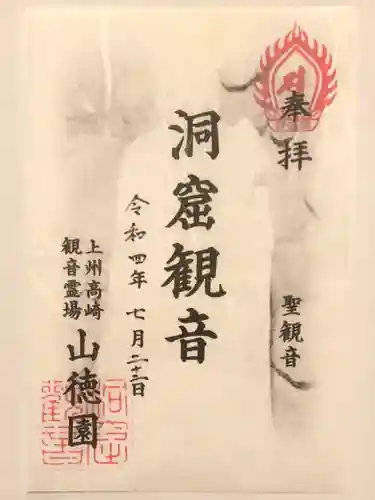 奉拝
聖観音
洞窟観音
令和四年七月二十二日
上州高崎
観音霊場
山徳園